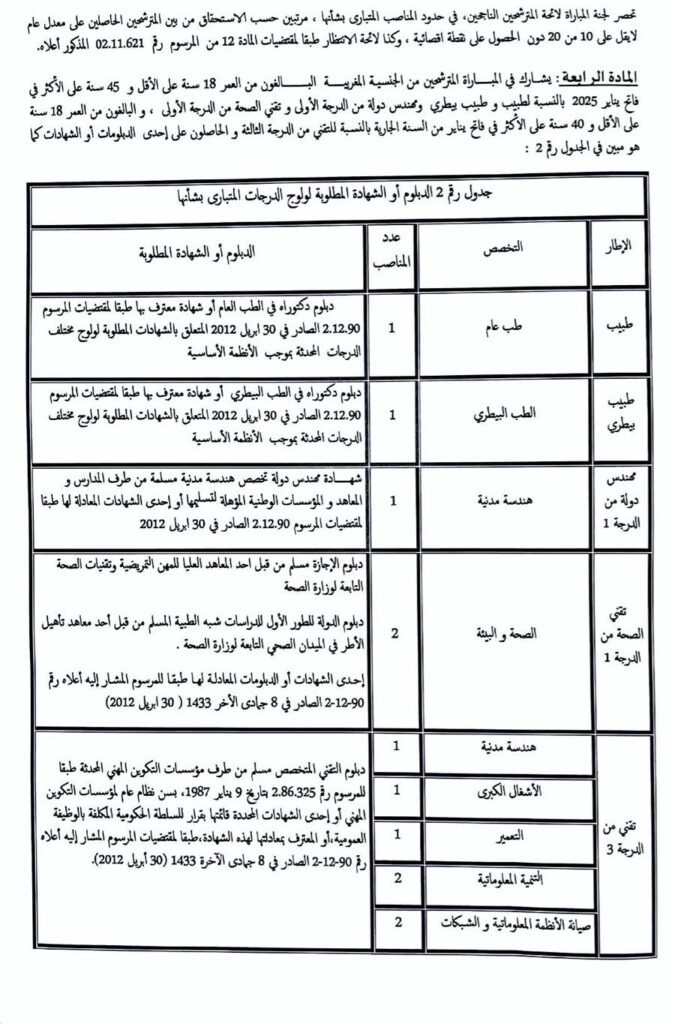 تحصر لجنة المباراة لائحة المترشحين الناجحين، في حدود المناصب المتبارى بشأنها ، مرتبين حسب الاستحقاق من بين المترشحين الحاصلين على معدل عام
لايقل على 10 من 20 دون الحصول على نقطة اقصائية ، وكذا لائحة الانتظار طبقا لمقتضيات المادة 12 من المرسوم رقم 02.11.621 المذكور أعلاه.
المادة الرابعة : يشارك في المباراة المترشحين من الجنسية المغربية البالغون من العمر 18 سنة على الأقل و 45 سنة على الأكثر في
فاتح يناير 2025 بالنسبة لطبيب و طبيب بيطري ومهندس دولة من الدرجة الأولى و تقني الصحة من الدرجة الأولى ، و البالغون من العمر 18 سنة
على الأقل و 40 سنة على الأكثر في فاتح يناير من السنة الجارية بالنسبة للتقني من الدرجة الثالثة و الحاصلون على إحدى الدبلومات أو الشهادات كما
هو مبين في الجدول رقم 2 :
جدول رقم 2 الدبلوم أو الشهادة المطلوبة لولوج الدرجات المتبارى بشأنها
الإطار
التخصص
عدد
المناصب
الدبلوم أو الشهادة المطلوبة
طبيب
طب عام
1
دبلوم دكتوراه في الطب العام أو شهادة معترف بها طبقا لمقتضيات المرسوم
2.12.90 الصادر في 30 ابريل 2012 المتعلق بالشهادات المطلوبة لولوج مختلف
الدرجات المحدثة بموجب الأنظمة الأساسية
طبيب
بيطري
الطب البيطري
1
دبلوم دكتوراه في الطب البيطري أو شهادة معترف بها طبقا لمقتضيات المرسوم
2.12.90 الصادر في 30 ابريل 2012 المتعلق بالشهادات المطلوبة لولوج مختلف
الدرجات المحدثة بموجب الأنظمة الأساسية
مهندس
دولة من
الدرجة 1
هندسة مدنية
1
شهادة مهندس دولة تخصص هندسة مدنية مسلمة من طرف المدارس و
المعاهد و المؤسسات الوطنية المؤهلة لتسليمها أو إحدى الشهادات المعادلة لها طبقا
لمقتضيات المرسوم 2.12.90 الصادر في 30 ابريل 2012
تقني
الصحة من
الدرجة 1
الصحة و البيئة
2
دبلوم الإجازة مسلم من قبل احد المعاهد العليا للمهن التمريضية وتقنيات الصحة
التابعة لوزارة الصحة
دبلوم الدولة للطور الأول للدراسات شبه الطبية المسلم من قبل أحد معاهد تأهيل
الأطر في الميدان الصحي التابعة لوزارة الصحة .
إحدى الشهادات أو الدبلومات المعادلة لها طبقا للمرسوم المشار إليه أعلاه رقم
2-12-90 الصادر في 8 جمادى الأخر 1433 ( 30 ابريل 2012)
تقني من
الدرجة 3
هندسة مدنية
1
الأشغال الكبرى
1
التعمير
1
التنمية المعلوماتية
2
صيانة الأنظمة المعلوماتية و الشبكات
2
دبلوم التقني المتخصص مسلم من طرف مؤسسات التكوين المهني المحدثة طبقا
للمرسوم رقم 2.86.325 بتاريخ 9 يناير 1987، بسن نظام عام لمؤسسات التكوين
المهني أو إحدى الشهادات المحددة قائمتها بقرار للسلطة الحكومية المكلفة بالوظيفة
العمومية،أو المعترف بمعادلتها لهذه الشهادة،طبقا لمقتضيات المرسوم المشار إليه أعلاه
رقم 2-12-90 الصادر في 8 جمادى الآخرة 1433 (30 أبريل 2012).